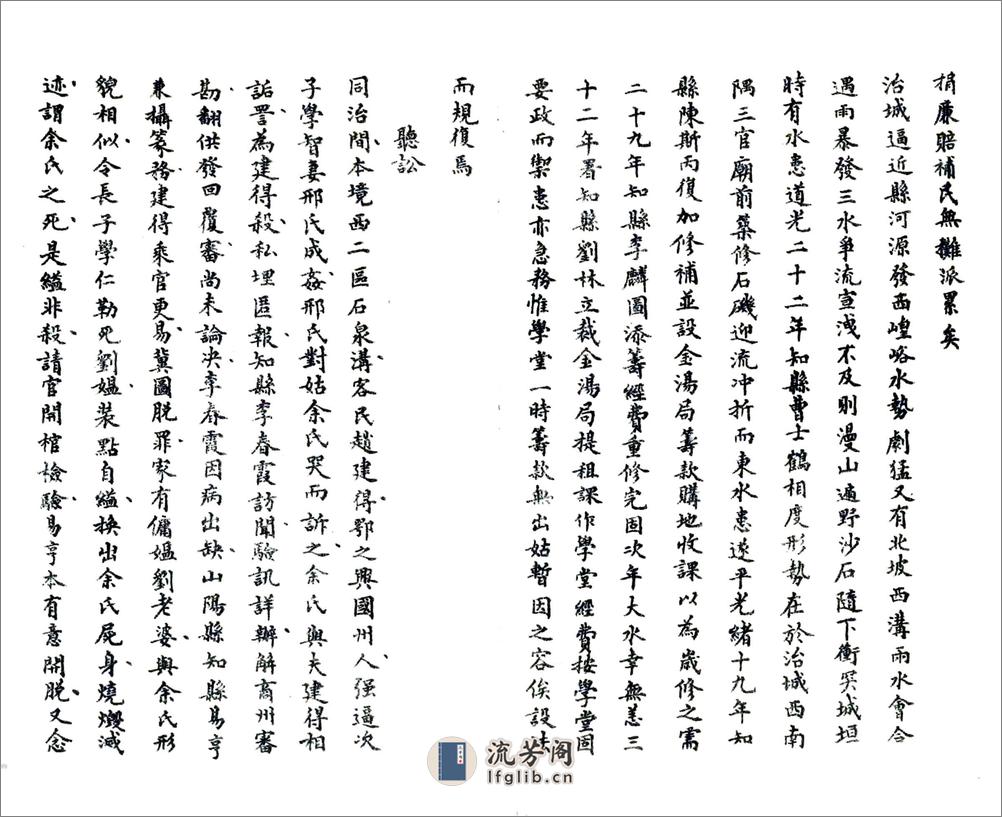 捐廉賠補民無攤派累矣
治城逼近縣河源發西嶢峪水勢劇猛又有北坡西溝雨水會合
遇雨暴發三水爭流宣洩不及則漫山遍野沙石隨下衝突城垣
時有水患道光二十二年知縣曹士鶴相度形勢在於治城西南
隅三官廟前築修石磯迎流冲折而東水患遂平光緒十九年知
縣陳斯丙復加修補並設金湯局籌款購地收課以為歲修之需
二十九年知縣李麟圖添籌經費重修完固次年大水幸無恙三
十二年署知縣劉林立裁金湯局提租課作學堂經費按學堂固
要政而禦患亦急務惟學堂一時籌款無出姑暫因之容俟設法
而規復焉
聽訟
同治間本境西二區石泉溝客民趙建得鄂之興國州人强逼次
子學智妻邢氏成姦邢氏對姑余氏哭而訴之余氏與夫建得相
詬詈為建得殺私埋匿報知縣李春霞訪聞驗訊詳辦解商州審
勘翻供發回覆審尚未論决李春霞因病出缺山陽縣知縣易亨
兼攝篆務建得乘官更易冀圖脱罪家有傭媪劉老婆與余氏形
貌相似令長子學仁勒死劉媪裝點自縊换出余氏屍身燒燬滅
迹謂余氏之死是縊非殺請官開棺檢驗易亨本有意開脱又念
流芳阁
lfglib.cn